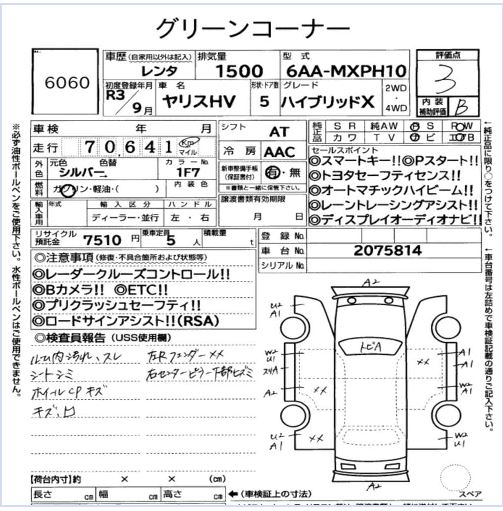 グリーンコーナー
6060
車歴 (自家用以外は記入) 排気量 型式
レンタ 1500 6AA-MXPH10
初度登録年月 車名 形状・ドア数 グレード
R3/9月 ヤリスHV 5 ハイブリッドX 2WD・4WD
評価点
3
内装補助評価 B
車検 年 月
走行 70641 Km マイル
シフト AT
冷房 AAC
純正品 SR 純AW PS PW
カワ TV ナビ エアB
外色 元色 色替 カラーNo
シルバー 1F7
燃料 ガソリン・軽油・( ) 内装色
新車整備手帳(保証書付) 有・無
※書類と一緒に保管して下さい。
セールスポイント
◎スマートキー!!◎Pスタート!!
◎トヨタセーフティセンス!!
◎オートマチックハイビーム!!
◎レーントレーシングアシスト!!
◎ディスプレイオーディオナビ!!
輸入車用 年式 輸入区分 ハンドル
ディーラー・並行 左・右
譲渡書類有効期限
月 日
リサイクル預託金 7510円 乗車定員 5人 積載量 t
登録No
車台No 2075814
シリアルNo
◎注意事項 (修復・不具合箇所および状態等)
◎レーダークルーズコントロール!!
◎Bカメラ!! ◎ETC!!
◎プリクラッシュセーフティ!!
◎ロードサインアシスト!!(RSA)
◎検査員報告 (USS使用欄)
ルーム内汚れ、スレ 左Rフェンダー××
シートシミ 右センターピラー下部ヒズミ
ホイールCPキズ
キズ、凹
A2
U2
A1
W2
U1
スリA
A1
××
トビA
A1
W2
U1
A1
××
U2
A1
A2
【荷台内寸】約 × × (cm)
長さ cm 幅 cm 高さ cm
←(車検証上の寸法)
スペア
※必ず油性ボールペンをご使用下さい。水性ボールペンはご使用できません。
←純正品に限り○で囲んで下さい。
←車台番号は左詰めで車検証記載の通りご記入下さい。